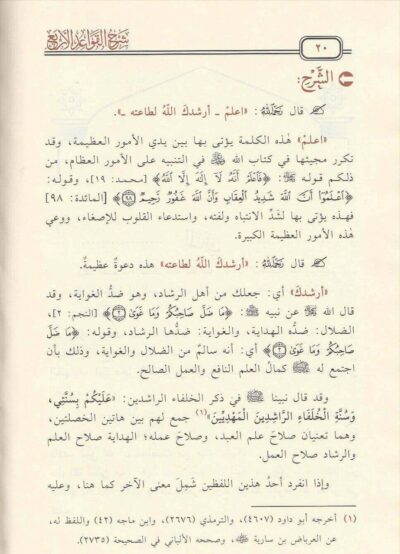 شرح القواعد الأربع
٢٠
الشَّرح:
قال رحمه الله: «اعلمْ - أرشدكَ اللّهُ لطاعته -».
«اعلمْ» هٰذه الكلمة يؤتى بها بين يدي الأمور العظيمة، وقد
تكرر مجيئها في كتاب الله ﷻ في التنبيه على الأمور العظام، من
ذلكم قوله ﷻ: ﴿فَاعْلَمْ أَنَّهُ لَا إِلَٰهَ إِلَّا اللَّهُ﴾ [محمد: ١٩]، وقوله:
﴿اعْلَمُوا أَنَّ اللَّهَ شَدِيدُ الْعِقَابِ وَأَنَّ اللَّهَ غَفُورٌ رَحِيمٌ ۝٩٨﴾ [المائدة: ٩٨]
فهذه يؤتى بها لشدِّ الانتباه ولفته، واستدعاء القلوب للإصغاء، ووعي
هٰذه الأمور العظيمة الكبيرة.
قال رحمه الله: «أرشدكَ اللّهُ لطاعته» هذه دعوةٌ عظيمةٌ.
«أرشدكَ» أي: جعلك من أهل الرشاد، وهو ضدُّ الغواية، وقد
قال الله ﷻ عن نبيه ﷺ: ﴿مَا ضَلَّ صَاحِبُكُمْ وَمَا غَوَىٰ ۝٢﴾ [النجم: ٢]،
الضلال: ضدُّه الهداية، والغواية: ضدُّها الرشاد، وقوله: ﴿مَا ضَلَّ
صَاحِبُكُمْ وَمَا غَوَىٰ ۝٢﴾ أي: أنه سالمٌ من الضلال والغواية، وذلك بأن
اجتمع له ﷺ كمالُ العلم النافع والعمل الصالح.
وقد قال نبينا ﷺ في ذكر الخلفاء الراشدين: «عَلَيْكُمْ بِسُنَّتِي،
وَسُنَّةِ الْخُلَفَاءِ الرَّاشِدِينَ الْمَهْدِيِّينَ»(١) جمع لهم بين هاتين الخصلتين،
وهما تعنيان صلاحَ علم العبد، وصلاحَ عمله؛ الهداية صلاح العلم
والرشاد صلاح العمل.
وإذا انفرد أحدُ هذين اللفظين شَمِلَ معنى الآخر كما هنا، وعليه
(١) أخرجه أبو داود (٤٦٠٧)، والترمذي (٢٦٧٦)، وابن ماجه (٤٢) واللفظ له،
عن العرباض بن سارية ﵁، وصححه الألباني في الصحيحة (٢٧٣٥)